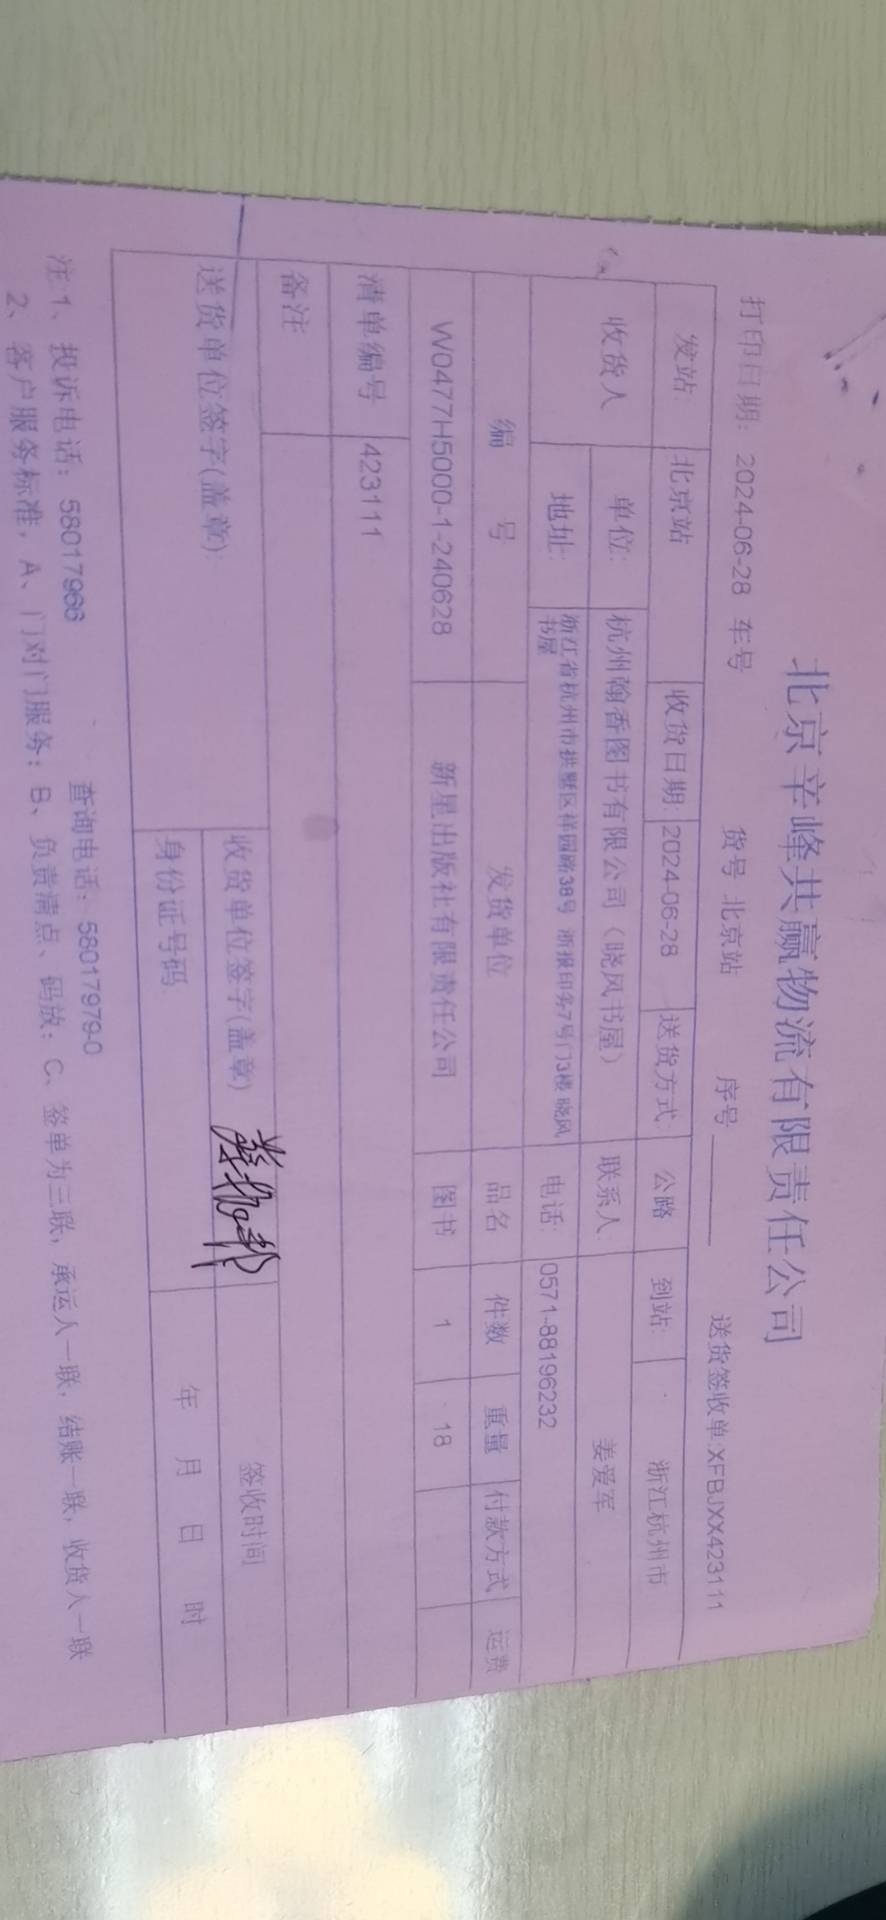 北京辛峰共赢物流有限责任公司
打印日期: 2024-06-28 车号 货号 北京站 序号 送货签收单:XFBJXX423111
发站 北京站 收货日期: 2024-06-28 送货方式: 公路 到站: 浙江杭州市
收货人 单位: 杭州翰香图书有限公司（晓风书屋） 联系人 姜爱军
地址: 浙江省杭州市拱墅区祥园路38号 浙报印务7号门3楼 晓风
书屋 电话: 0571-88196232
编 号 发货单位 品名 件数 重量 付款方式 运费
W0477H5000-1-240628 新星出版社有限责任公司 图书 1 18
清单编号 423111
备注
送货单位签字(盖章): 收货单位签字(盖章) 签收时间
身份证号码 年 月 日 时
注:1、投诉电话: 58017966 查询电话: 58017979-0
2、客户服务标准, A、门对门服务; B、负责清点、码放; C、签单为三联, 承运人一联, 结账一联, 收货人一联